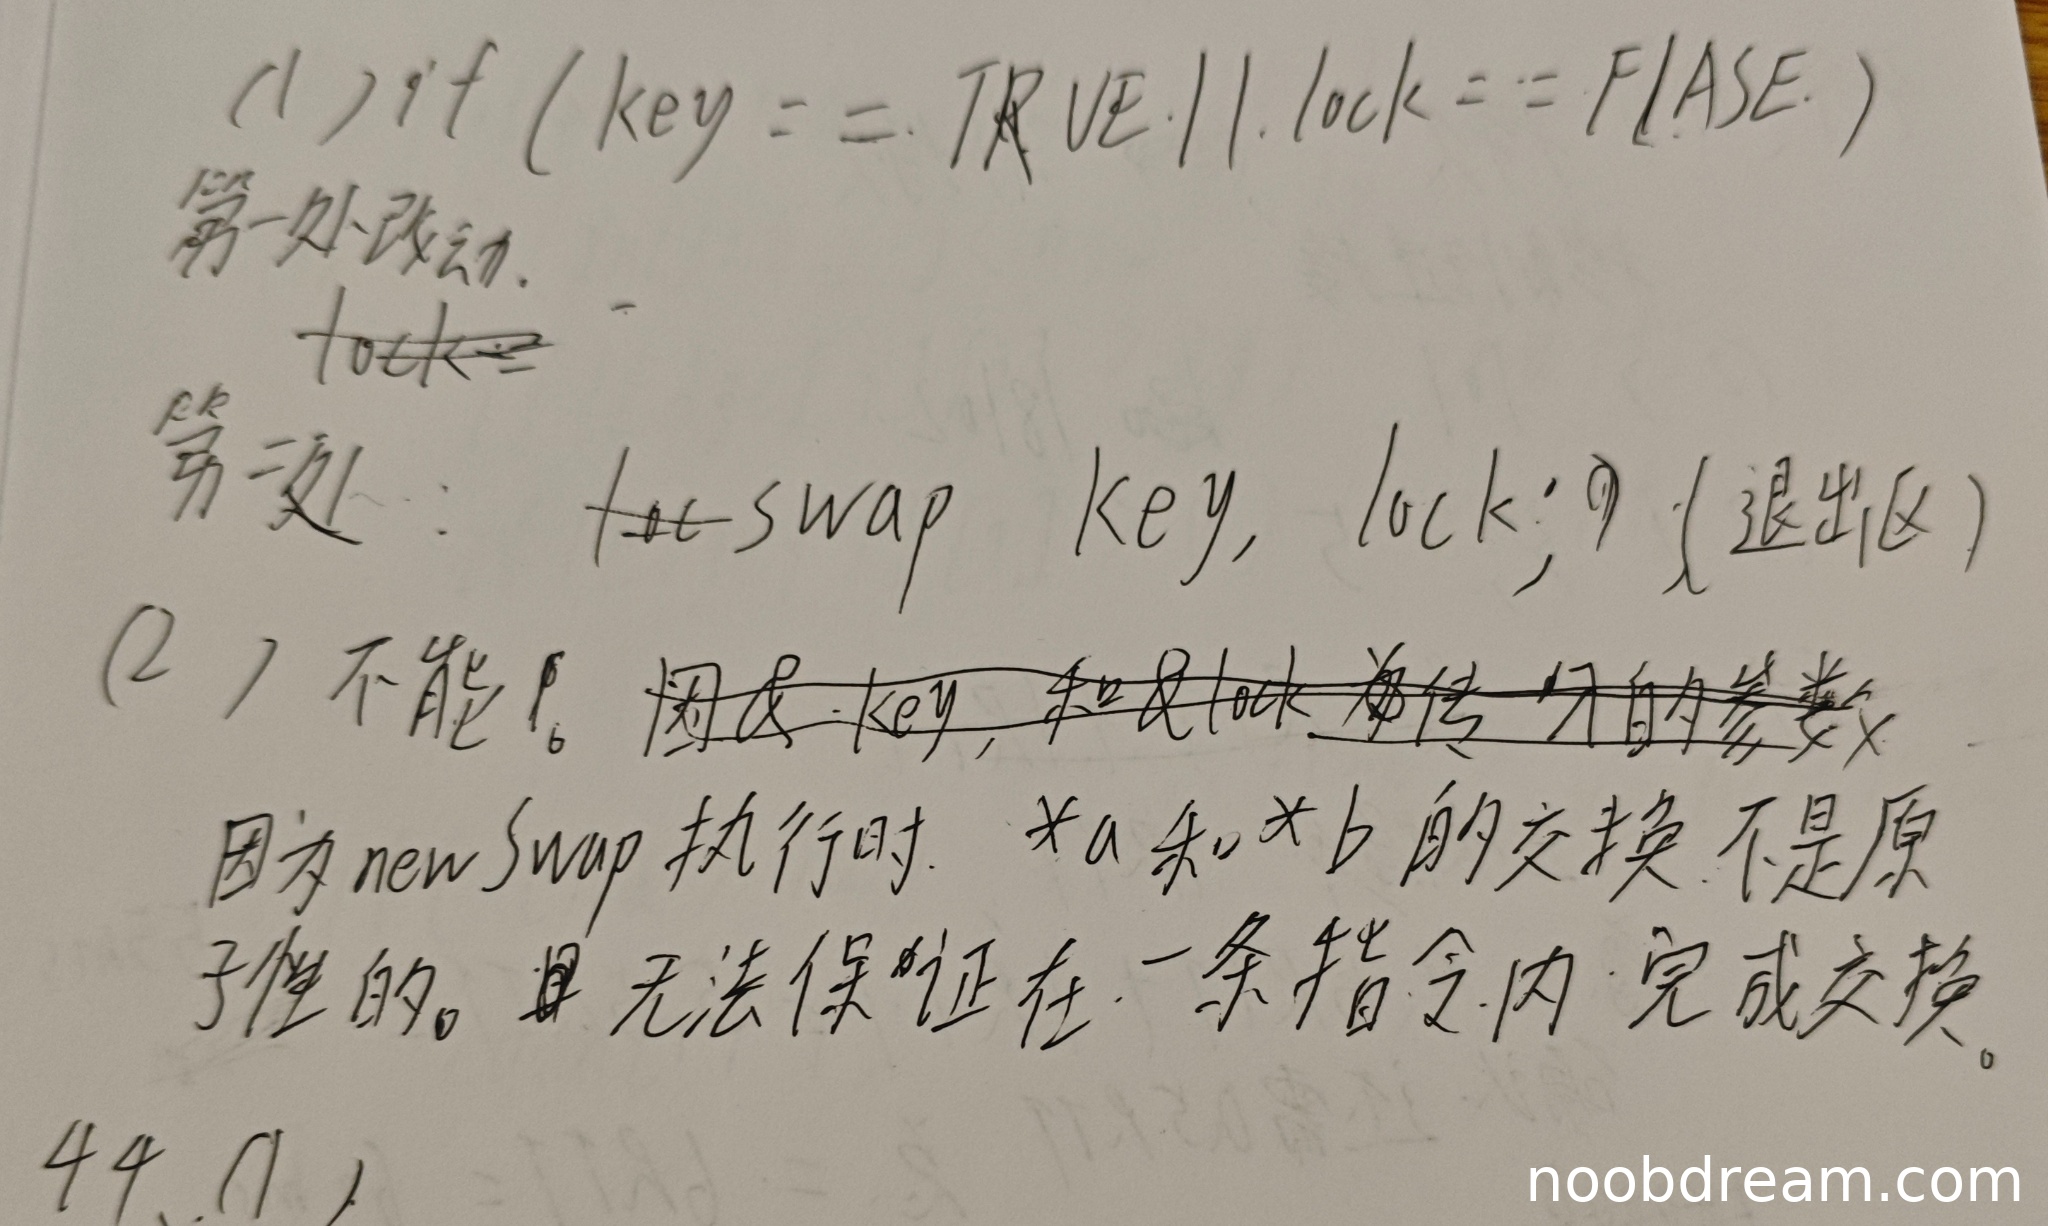 (1) if (key == TRUE || lock == FLASE)
第一处改动.
lock=
第二处: swap key, lock; (退出区)
(2) 不能。因&key,和&lock为传 的参数
因为newSwap执行时 *a和*b的交换不是原
子性的。无法保证在一条指令内完成交换。
44、(1)
noobdream.com